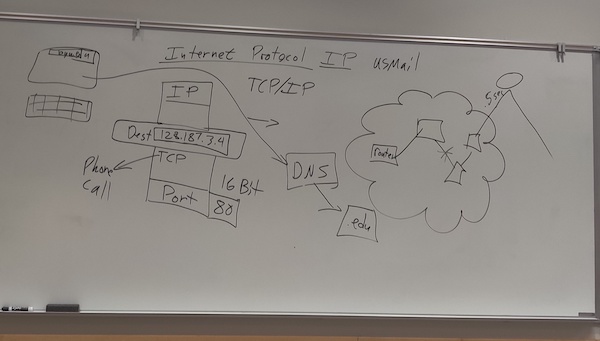 Internet Protocol IP USMail
TCP/IP
IP
Dest 128.187.3.4
TCP
Phone
Call
16 Bit
Port 80
DNS
.edu
router